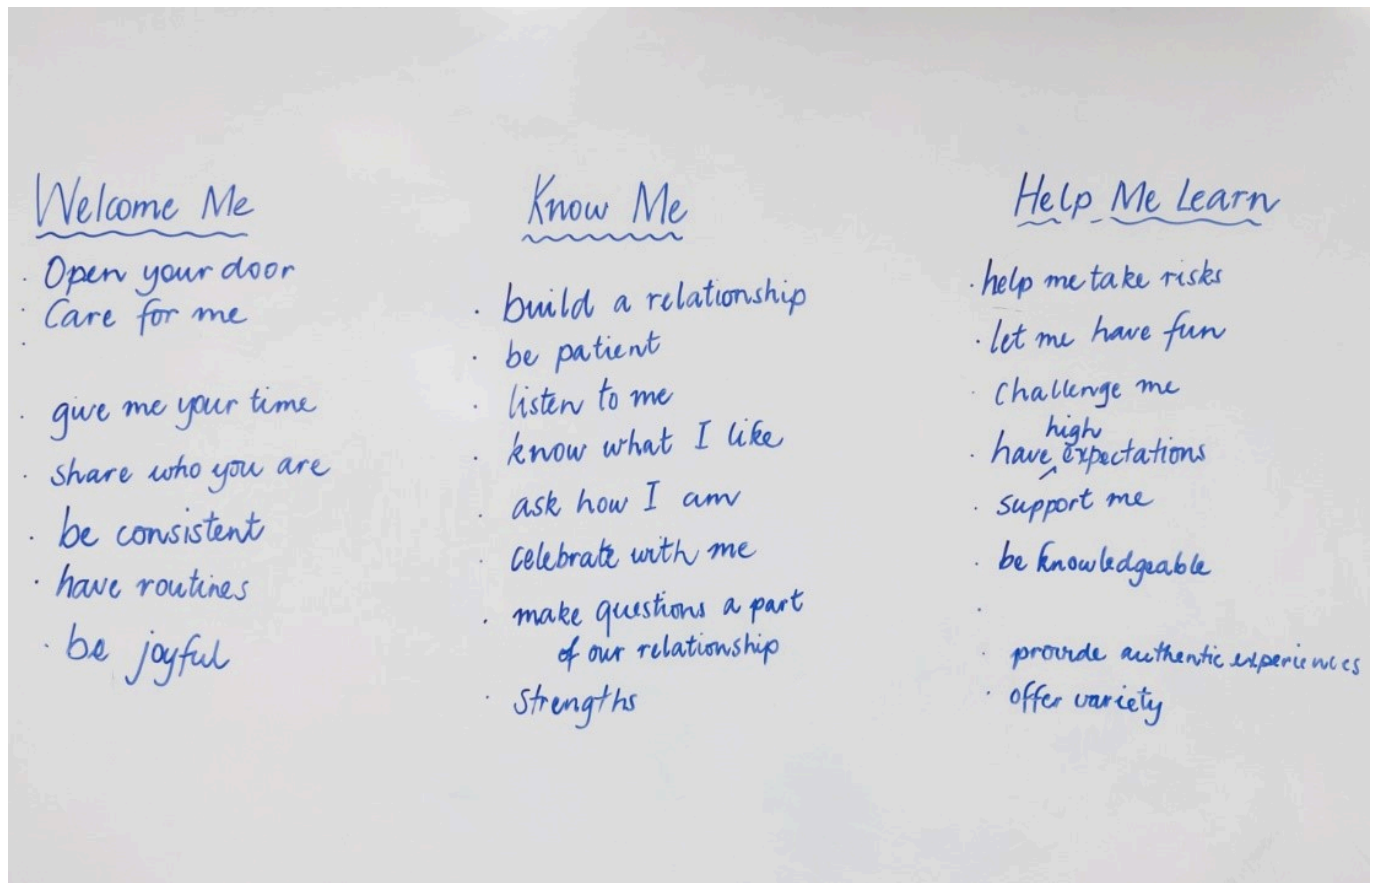 Welcome Me
· Open your door
· Care for me
·
· give me your time
· share who you are
· be consistent
· have routines
· be joyful
Know Me
· build a relationship
· be patient
· listen to me
· know what I like
· ask how I am
· celebrate with me
· make questions a part
of our relationship
· Strengths
Help Me Learn
· help me take risks
· let me have fun
· challenge me
high
· have ^ expectations
· support me
· be knowledgeable
·
· provide authentic experiences
· offer variety